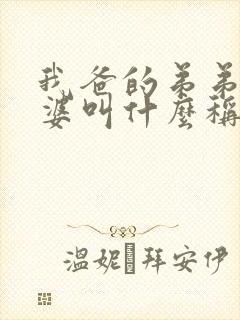 我爸的弟弟
婆叫什麼稱
溫妮 拜安伊